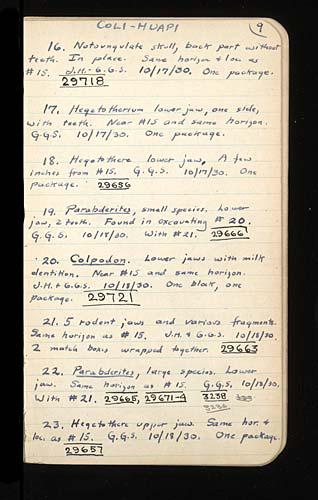 COLI-HUAPI
9
16. Notoungulate skull, back part without
teeth. In place. Same horizon & loc. as
#15. J.H.-G.G.S. 10/17/30. One package.
29718
17. Hegetotherium lower jaw, one side,
with teeth. Near #15 and same horizon.
G.G.S. 10/17/30. One package.
18. Hegetothere lower jaw. A few
inches from #15. G.G.S. 10/17/30. One
package. 29656
19. Parabderites, small species. Lower
jaw, 2 teeth. Found in excavating #20.
G.G.S. 10/18/30. With #21. 29666
20. Colpodon. Lower jaws with milk
dentition. Near #15 and same horizon.
J.H. & G.G.S. 10/18/30. One block, one
package. 29721
21. 5 rodent jaws and various fragments.
Same horizon as #15. J.H. & G.G.S. 10/18/30.
2 match boxes wrapped together. 29663
22. Parabderites, large species. Lower
jaw. Same horizon as #15. G.G.S. 10/18/30.
With #21. 29665, 29671-4 3238
3236
23. Hegetothere upper jaw. Same hor. &
loc. as #15. G.G.S. 10/18/30. One package.
29657